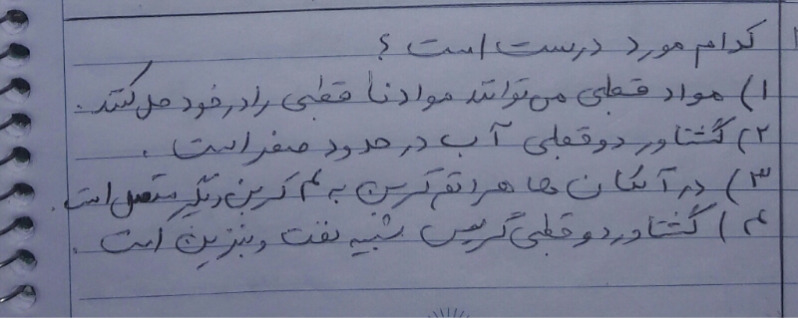 کدام مورد درست است ؟
۱) مواد قطبی می‌توانند مواد نا قطبی را در خود حل کنند .
۲) گشتاور دوقطبی آب در حدود صفر است .
۳) در آلکان ها هر اتم کربن به ۴ کربن دیگر متصل است .
۴) گشتاور دوقطبی گریس شبیه نفت و بنزین است .